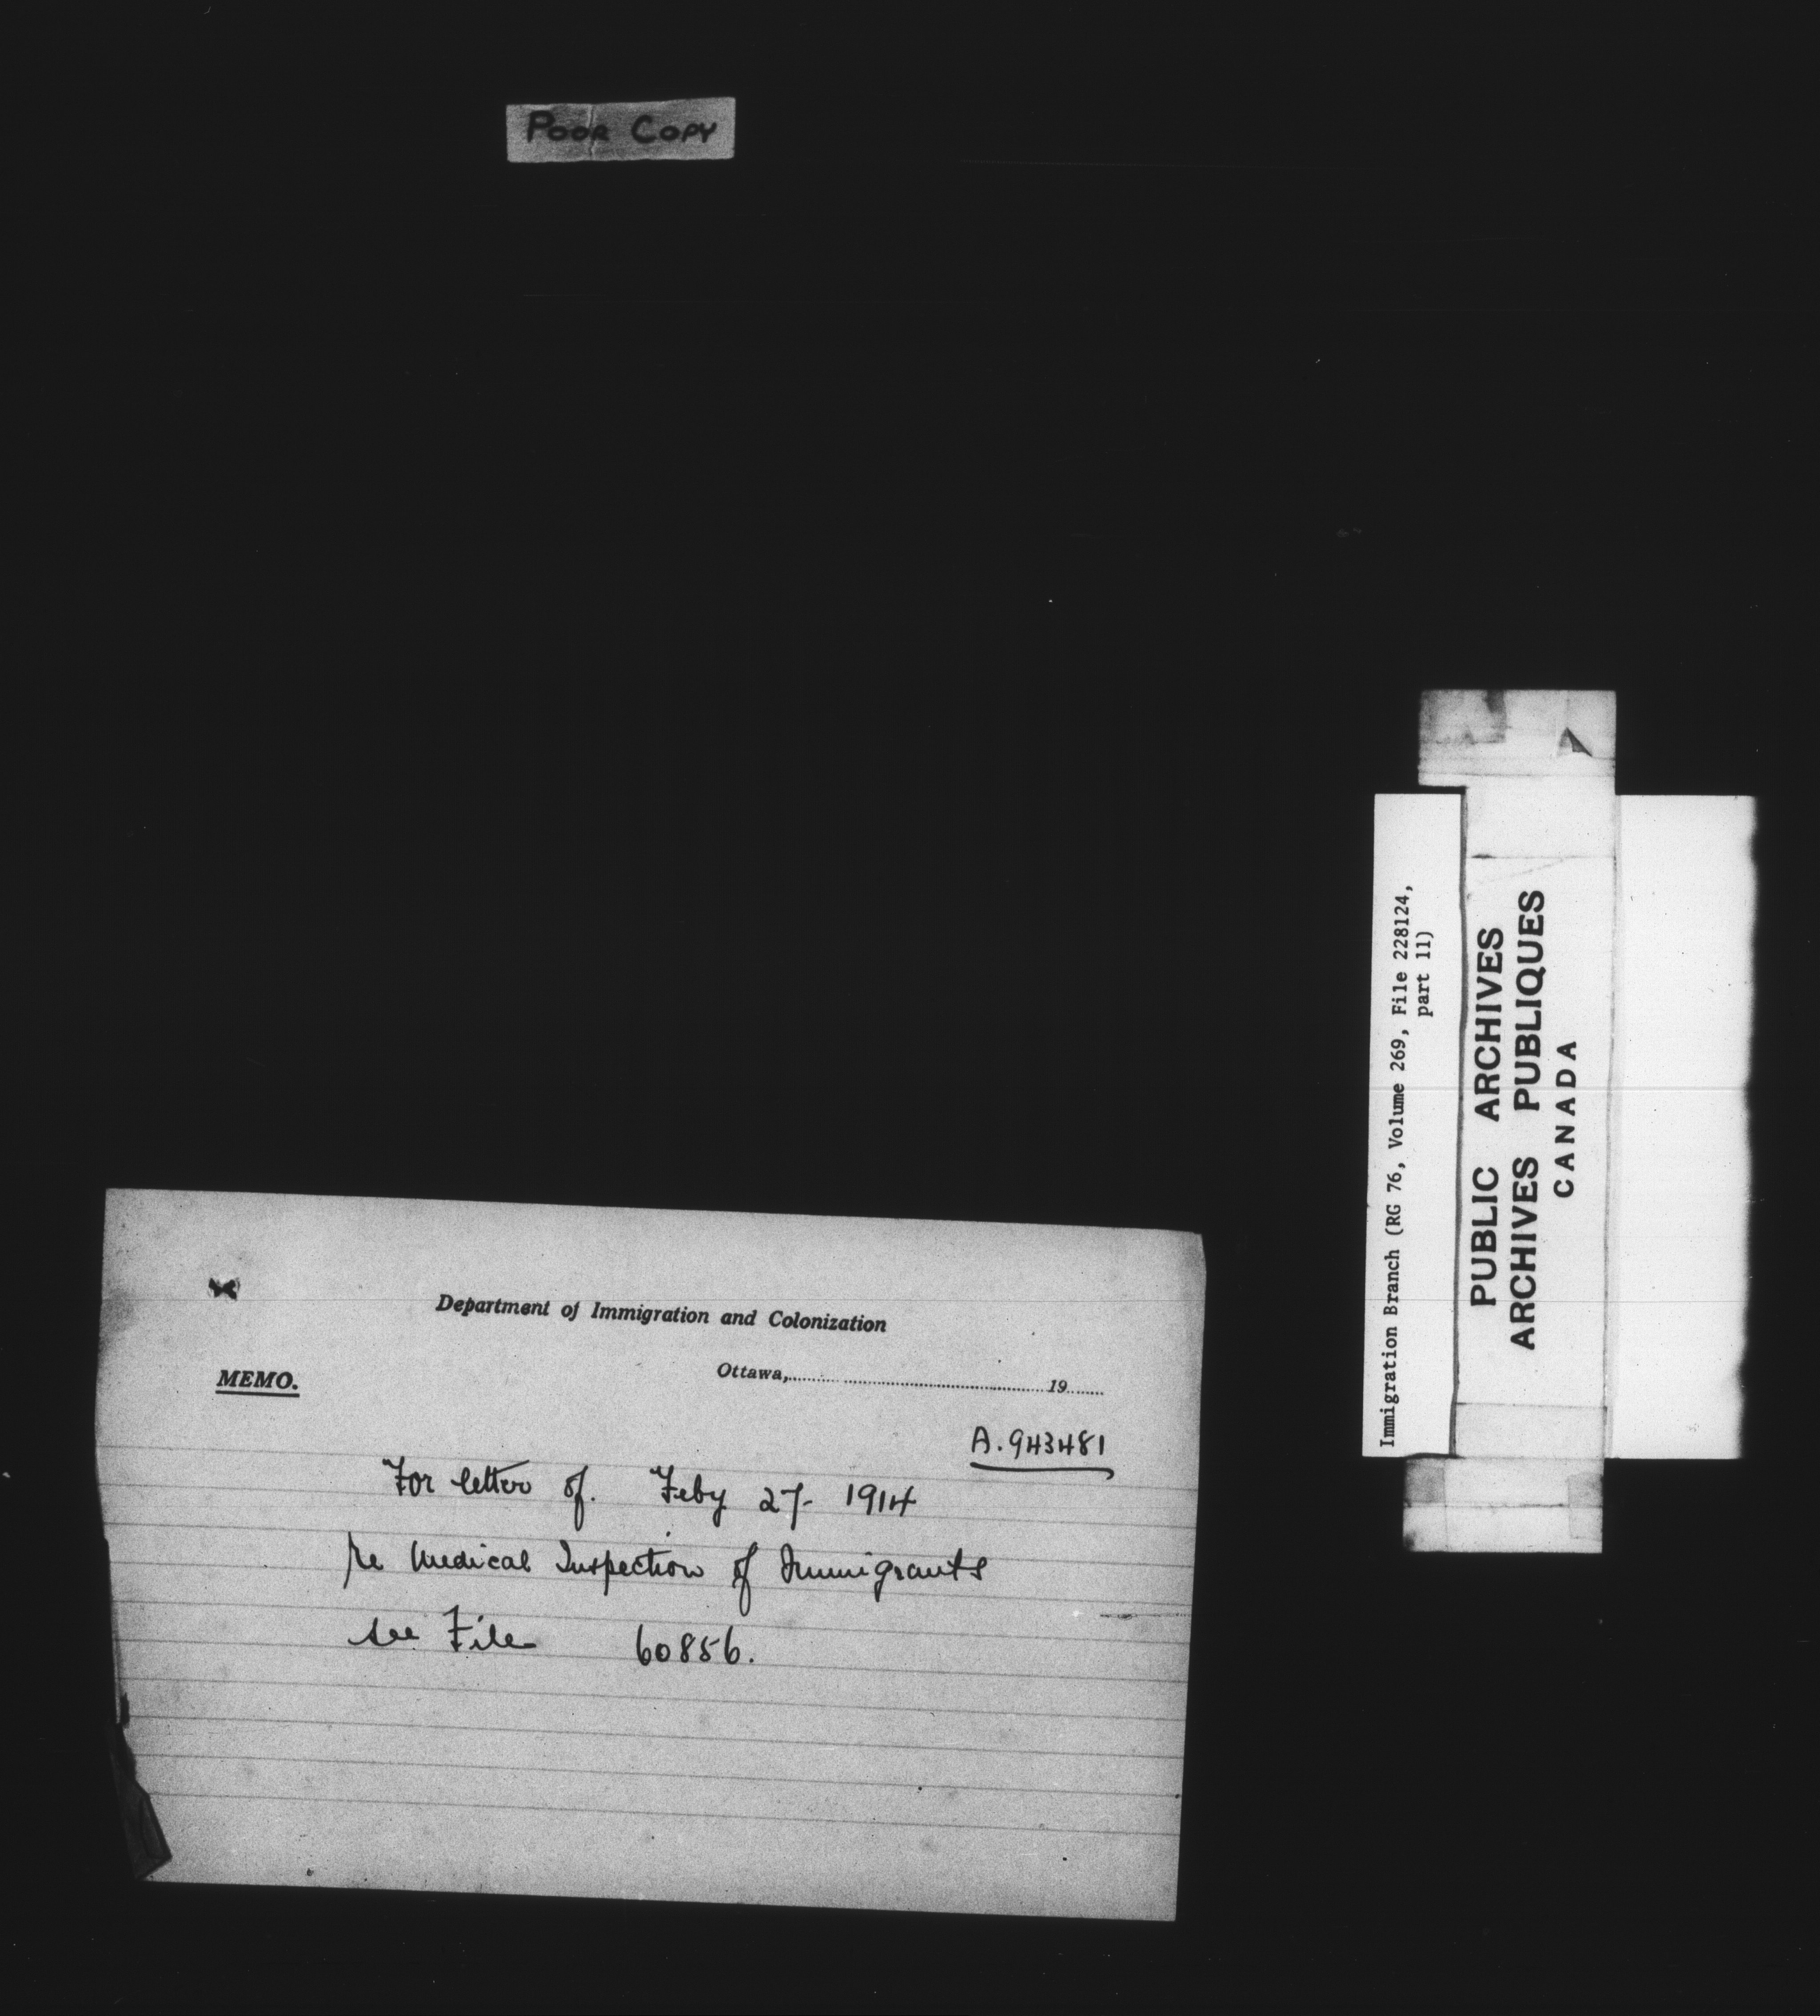 POOR COPY
Department of Immigration and Colonization
MEMO.
Ottawa, 19
A.943481
For letter of. Feby 27- 1914
Re Medical Inspection of Immigrants
see File 60856.
Immigration Branch (RG 76, Volume 269, File 228124,
part 11)
PUBLIC ARCHIVES
ARCHIVES PUBLIQUES
CANADA